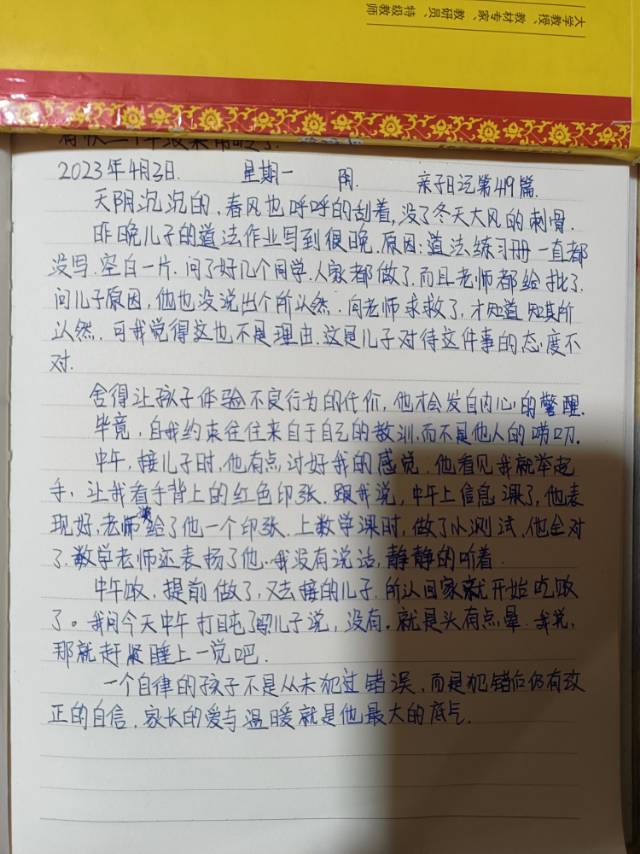 大学教授、教材专家、教研员、特级教师
2023年4月3日. 星期一 阴. 亲子日记第419篇.
天阴沉沉的,春风也呼呼的刮着,没了冬天大风的刺骨.
昨晚儿子的道法作业写到很晚.原因:道法练习册一直都
没写.空白一片.问了好几个同学.人家都做了.而且老师都给批了.
问儿子原因,他也没说出个所以然.向老师求救了,才知道知其所
以然.可我觉得这也不是理由.这是儿子对待这件事的态度不
对.
舍得让孩子体验不良行为的代价,他才会发自内心的警醒.
毕竟,自我约束往往来自于自己的教训.而不是他人的唠叨.
中午,接儿子时,他有点讨好我的感觉.他看见我就举起
手,让我看手背上的红色印张.跟我说,中午上信息课了,他表
现好,老师奖给了他一个印张.上数学课时,做了小测试,他全对
了.数学老师还表扬了他.我没有说话,静静的听着.
中午饭,提前做了,又去接的儿子.所认回家就开始吃饭
了。我问今天中午打盹了吗儿子说,没有.就是头有点晕.我说,
那就赶紧睡上一觉吧.
一个自律的孩子不是从未犯过错误,而是犯错后仍有改
正的自信.家长的爱与温暖就是他最大的底气.